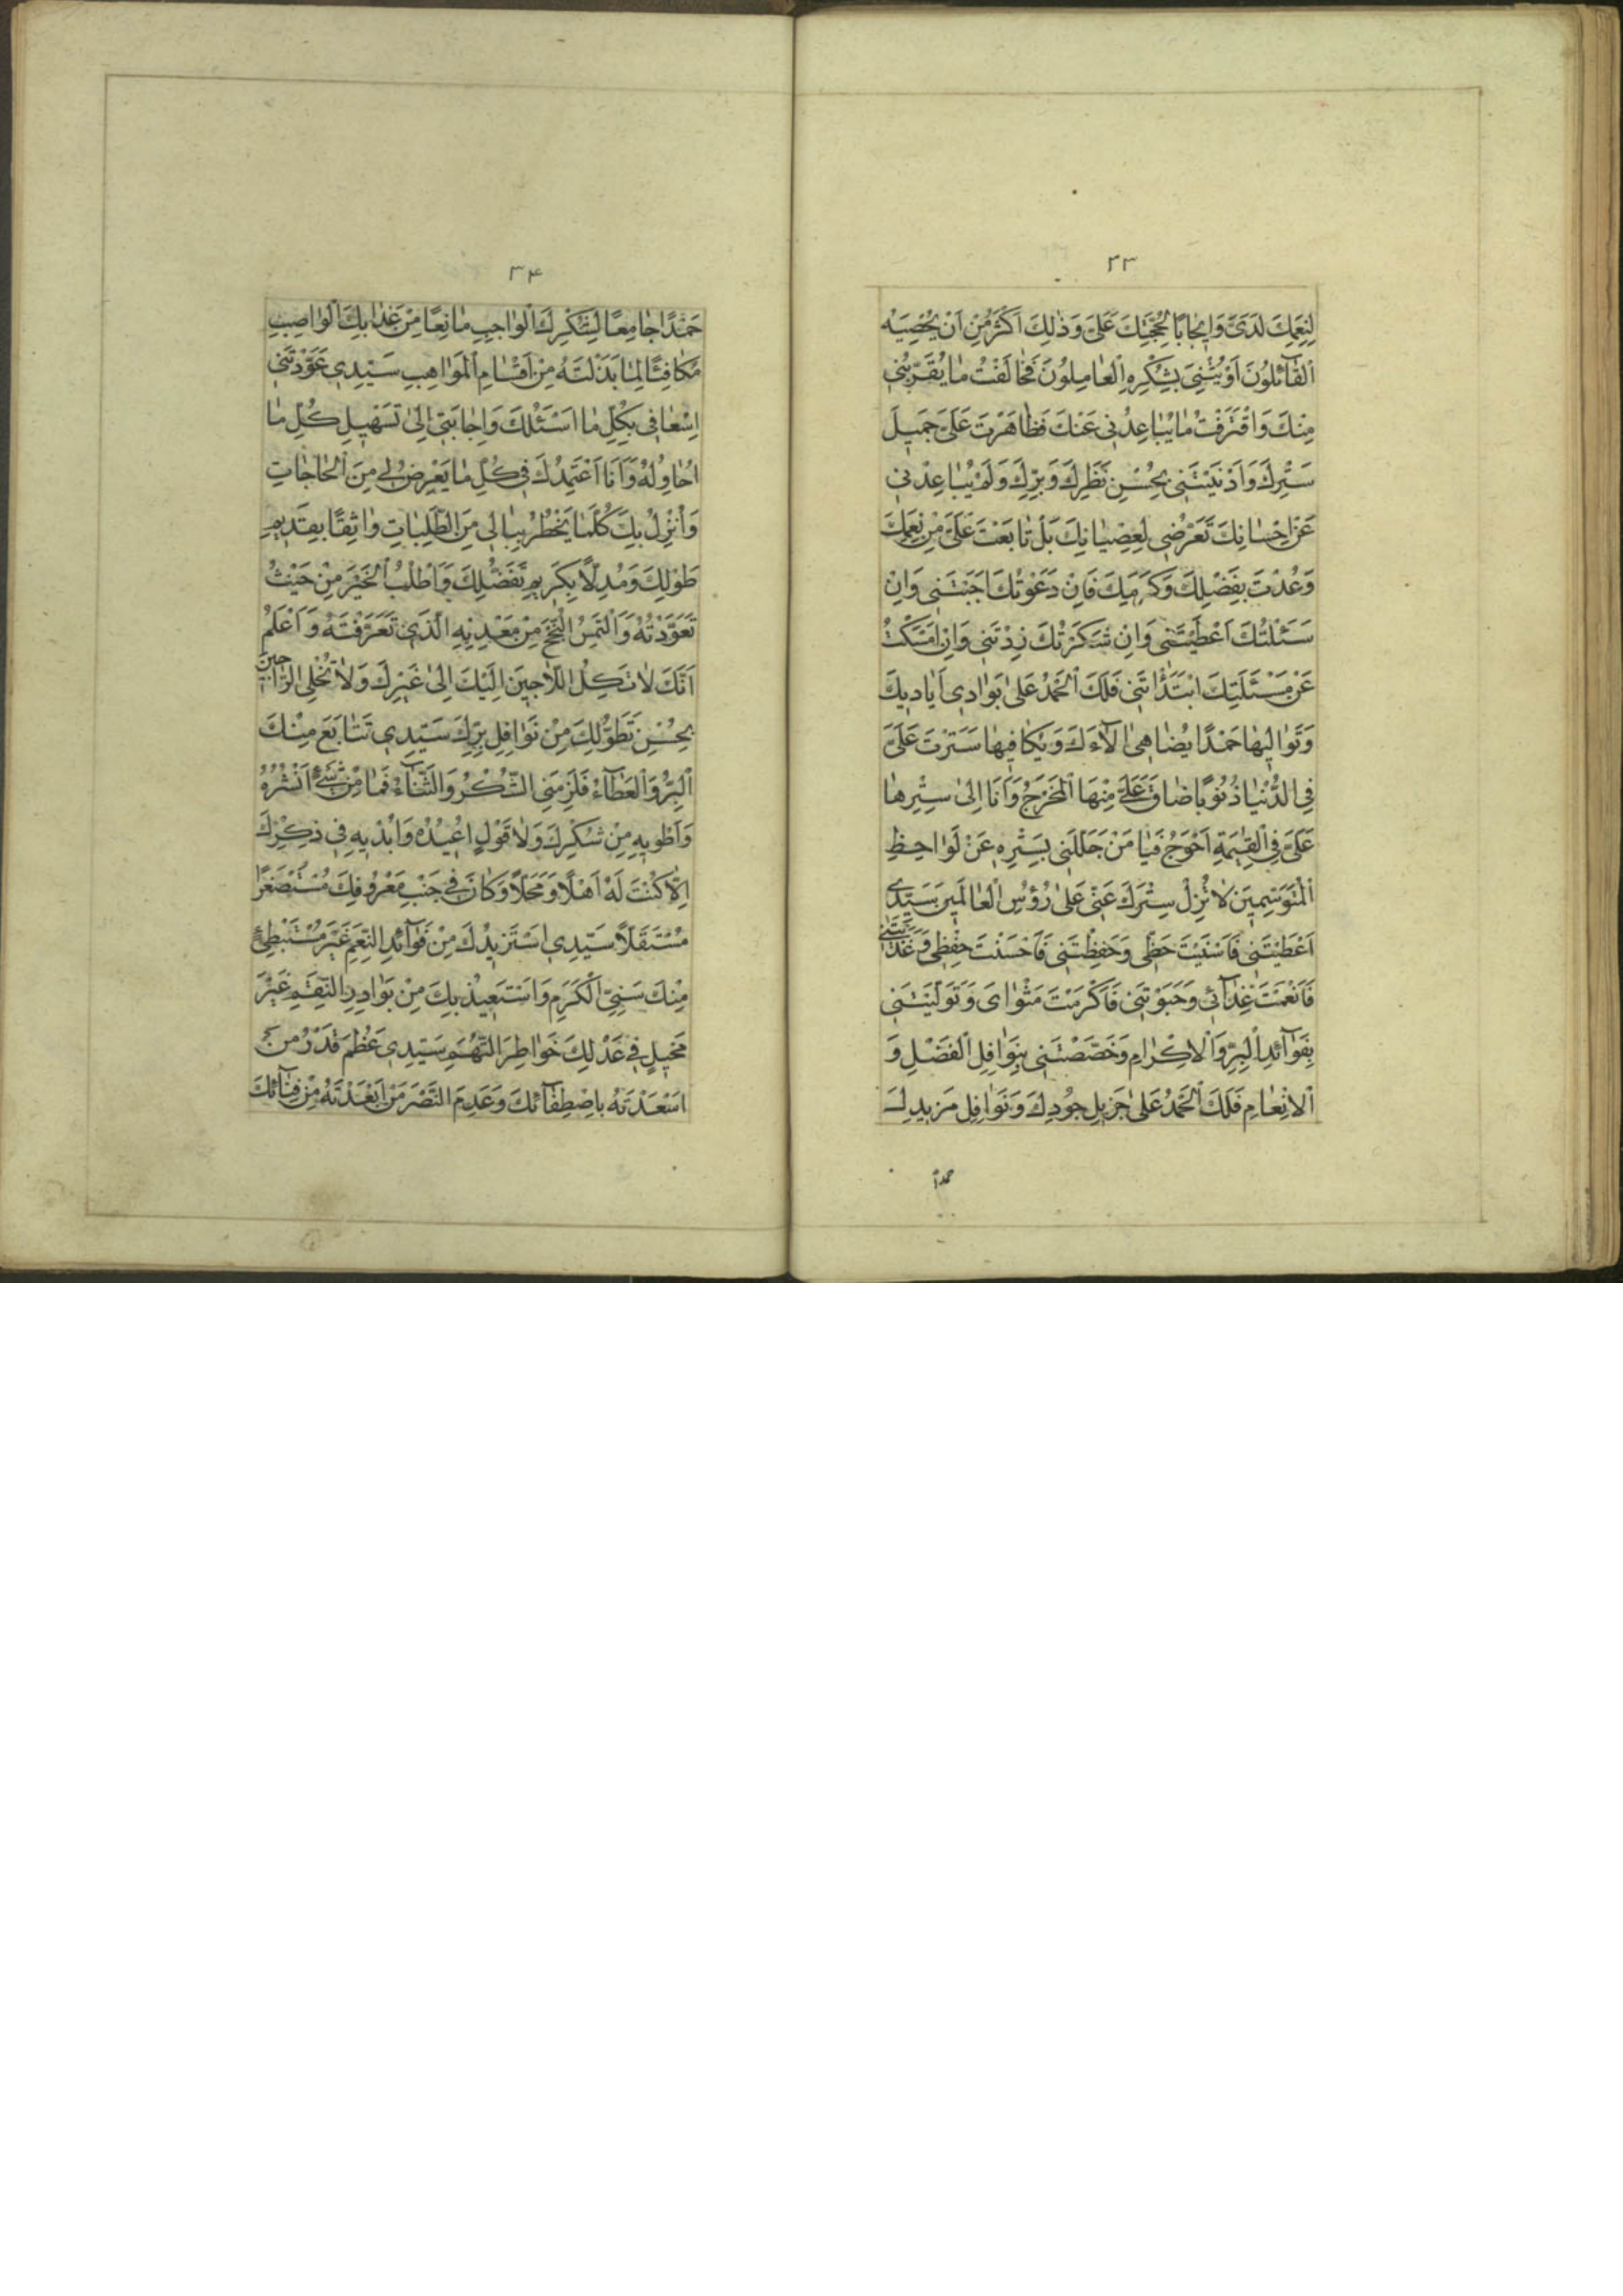 ٣٣
لِنِعَمِكَ لَدَىَّ وَاِيجٰابًا لِحُجَّتِكَ عَلَىَّ وَذٰلِكَ اَكْثَرُ مِنْ اَنْ يُحْصِيَهُ
الْقٰآئِلُونَ اَوْ يُثْنِىَ بِشُكْرِهِ الْعٰامِلُونَ فَخٰالَفْتُ مٰا يُقَرِّبُنِى
مِنْكَ وَاقْتَرَفْتُ مٰا يُبٰاعِدُنِى عَنْكَ فَظٰاهَرْتَ عَلَىَّ جَمِيلَ
سَتْرِكَ وَاَدْنَيْتَنِى بِحُسْنِ نَظَرِكَ وَبِرِّكَ وَلَمْ يُبٰاعِدْنِى
عَنْ اِحْسٰانِكَ تَعَرُّضِى لِعِصْيٰانِكَ بَلْ تٰابَعْتَ عَلَىَّ مِنْ نِعَمِكَ
وَعُدْتَ بِفَضْلِكَ وَكَرَمِكَ فَاِنْ دَعَوْتُكَ اَجَبْتَنِى وَاِنْ
سَئَلْتُكَ اَعْطَيْتَنِى وَاِنْ شَكَرْتُكَ زِدْتَنِى وَاِنْ اَمْسَكْتُ
عَنْ مَسْئَلَتِكَ ابْتَدَأْتَنِى فَلَكَ الْحَمْدُ عَلىٰ بَوٰادِى اَيٰادِيكَ
وَتَوٰالِيهٰا حَمْدًا يُضٰاهِى اٰلآءَكَ وَيُكٰافِيهٰا سَتَرْتَ عَلَىَّ
فِى الدُّنْيٰا ذُنُوبًا ضٰاقَ عَلَىَّ مِنْهَا الْمَخْرَجُ وَاَنَا اِلىٰ سِتْرِهٰا
عَلَىَّ فِى الْقِيٰمَةِ اَحْوَجُ فَيٰا مَنْ جَلَّلَنِى بِسَتْرِهِ عَنْ لَوٰاحِظِ
الْمُتَوَسِّمِينَ لاٰ تُزِلْ سِتْرَكَ عَنِّى عَلىٰ رُؤُسِ الْعٰالَمِينَ سَيِّدِى
اَعْطَيْتَنِى فَاَسْنَيْتَ حَظِّى وَحَفِظْتَنِى فَاَحْسَنْتَ حِفْظِى وَغَذَّيْتَنِى
فَاَنْعَمْتَ غِذٰآئِى وَحَبَوْتَنِى فَاَكْرَمْتَ مَثْوٰاىَ وَتَوَلَّيْتَنِى
بِفَوٰآئِدِ الْبِرِّ وَالْاِكْرٰامِ وَخَصَصْتَنِى بِنَوٰافِلِ الْفَضْلِ وَ
الْاِنْعٰامِ فَلَكَ الْحَمْدُ عَلىٰ جَزِيلِ جُودِكَ وَنَوٰافِلِ مَزِيدِكَ
حمداً
٣۴
حَمْدًا جٰامِعًا لِشُكْرِكَ الْوٰاجِبِ مٰانِعًا مِنْ عَذٰابِكَ الْوٰاصِبِ
مُكٰافِئًا لِمٰا بَذَلْتَهُ مِنْ اَقْسٰامِ الْمَوٰاهِبِ سَيِّدِى عَوَّدْتَنِى
اِسْعٰافِى بِكُلِّ مٰا اَسْئَلُكَ وَاِجٰابَتِى اِلىٰ تَسْهِيلِ كُلِّ مٰا
اُحٰاوِلُهُ وَاَنَا اَعْتَمِدُكَ فِى كُلِّ مٰا يَعْرِضُ لِى مِنَ الْحٰاجٰاتِ
وَاُنْزِلُ بِكَ كُلَّمٰا يَخْطُرُ بِبٰالِى مِنَ الطَّلِبٰاتِ وٰاثِقًا بِقَدِيمِ
طَوْلِكَ وَمُدِلاًّ بِكَرِيمِ تَفَضُّلِكَ وَاَطْلُبُ الْخَيْرَ مِنْ حَيْثُ
تَعَوَّدْتُهُ وَاَلْتَمِسُ النُّجْحَ مِنْ مَعْدِنِهِ الَّذِى تَعَرَّفْتُهُ وَاَعْلَمُ
اَنَّكَ لاٰ تَكِلُ اللاّٰجِينَ اِلَيْكَ اِلىٰ غَيْرِكَ وَلاٰ تُخْلِى الرّٰاجِينَ
بِحُسْنِ تَطَوُّلِكَ مِنْ نَوٰافِلِ بِرِّكَ سَيِّدِى تَتٰابَعَ مِنْكَ
الْبِرُّ وَالْعَطٰآءُ فَلَزِمَنِى الشُّكْرُ وَالثَّنٰآءُ فَمٰا مِنْ شَىْءٍ اَنْشُرُهُ
وَاَطْوِيهِ مِنْ شُكْرِكَ وَلاٰ قَوْلٍ اُعِيدُهُ وَاُبْدِيهِ فِى ذِكْرِكَ
اِلاّٰ كُنْتَ لَهُ اَهْلًا وَمَحَلًّا وَكٰانَ فِى جَنْبِ مَعْرُوفِكَ مُسْتَصْغَرًا
مُسْتَقَلًّا سَيِّدِى اَسْتَزِيدُكَ مِنْ فَوٰآئِدِ النِّعَمِ غَيْرَ مُسْتَبْطِئٍ
مِنْكَ سَنِىَّ الْكَرَمِ وَاَسْتَعِيذُ بِكَ مِنْ بَوٰادِرِ النِّقَمِ غَيْرَ
مُخِيلٍ فِى عَدْلِكَ خَوٰاطِرَ التُّهَمِ سَيِّدِى عَظُمَ قَدْرُ مَنْ
اَسْعَدْتَهُ بِاصْطِفٰآئِكَ وَعَدِمَ النَّصْرَ مَنْ اَبْعَدْتَهُ مِنْ فِنٰآئِكَ